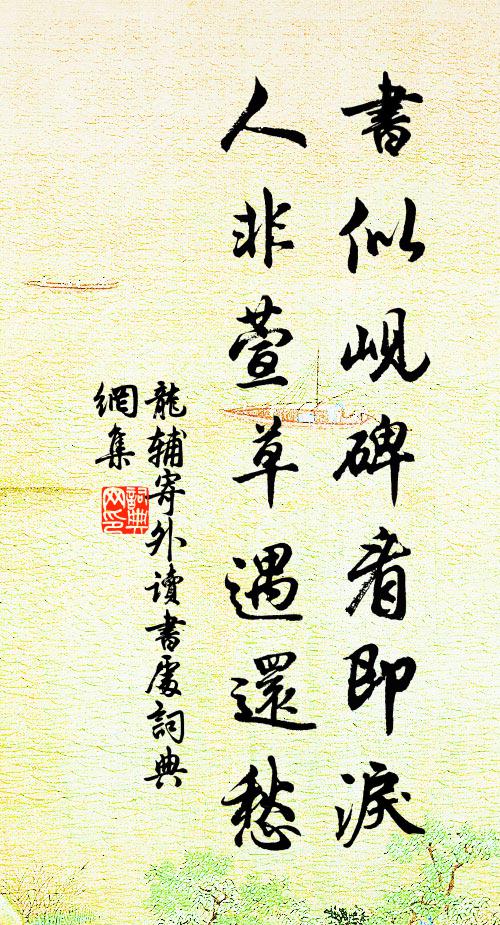 書似峴碑看即淚
人非萱草遇還愁
龍輔寄外讀書處詞典
網集
詞典
网印